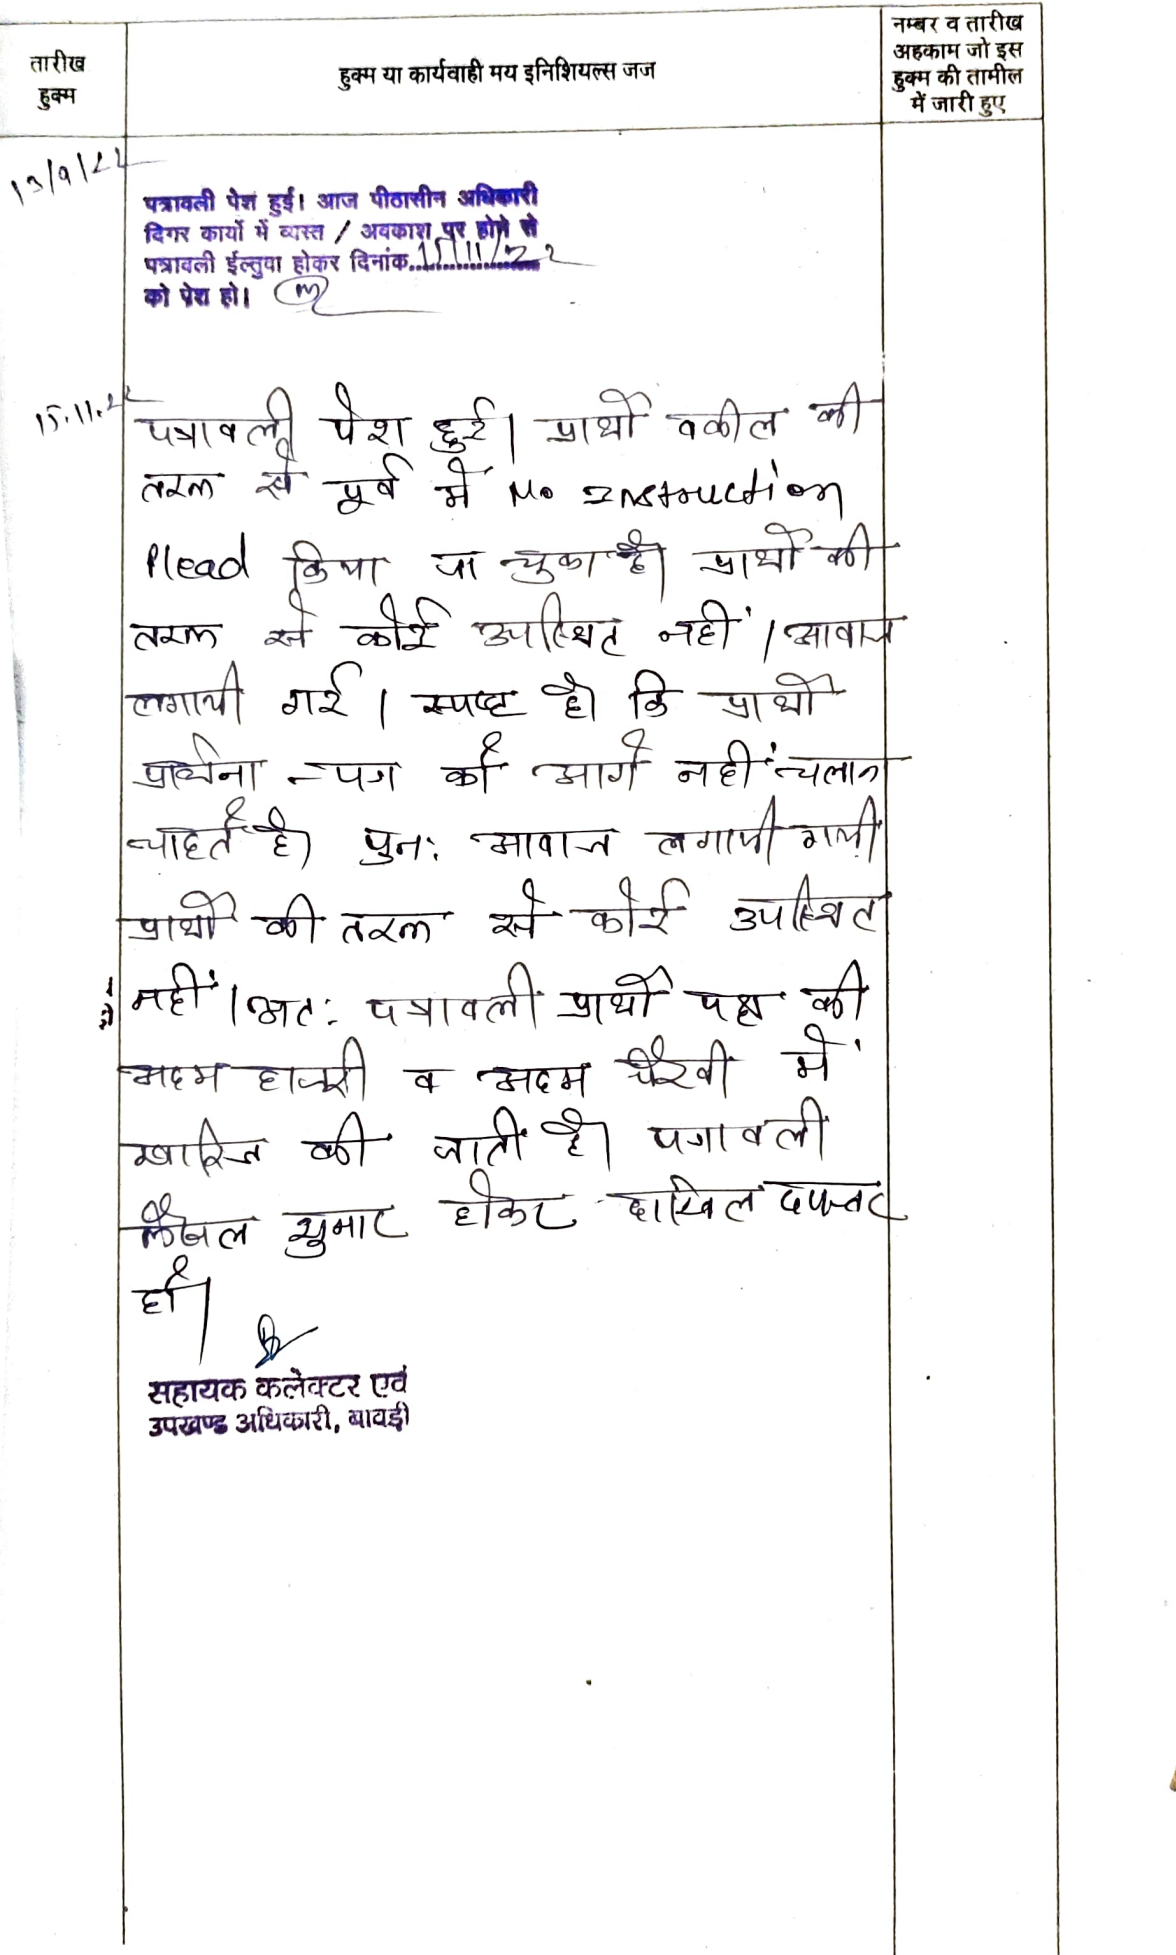 तारीख
हुक्म
हुक्म या कार्यवाही मय इनिशियल्स जज
नम्बर व तारीख
अहकाम जो इस
हुक्म की तामील
में जारी हुए
13/9/22
पत्रावली पेश हुई। आज पीठासीन अधिकारी
दिगर कार्यो में व्यस्त / अवकाश पर होने से
पत्रावली ईल्तुवा होकर दिनांक 15/11/22
को पेश हो।
15.11.22
पत्रावली पेश हुई। प्रार्थी वकील की
तरफ से पूर्व में No Instruction
Plead किया जा चुका है। प्रार्थी की
तरफ से कोई उपस्थित नहीं। आवाज
लगायी गई। स्पष्ट है कि प्रार्थी
प्रार्थना पत्र को आगे नहीं चलाना
चाहते है। पुनः आवाज लगायी गयी
प्रार्थी की तरफ से कोई उपस्थित
नहीं। अतः पत्रावली प्रार्थी पक्ष की
अदम हाजरी व अदम पैरवी में
खारिज की जाती है। पत्रावली
फैसल शुमार होकर दाखिल दफ्तर
हो।
सहायक कलेक्टर एवं
उपखण्ड अधिकारी, बावड़ी